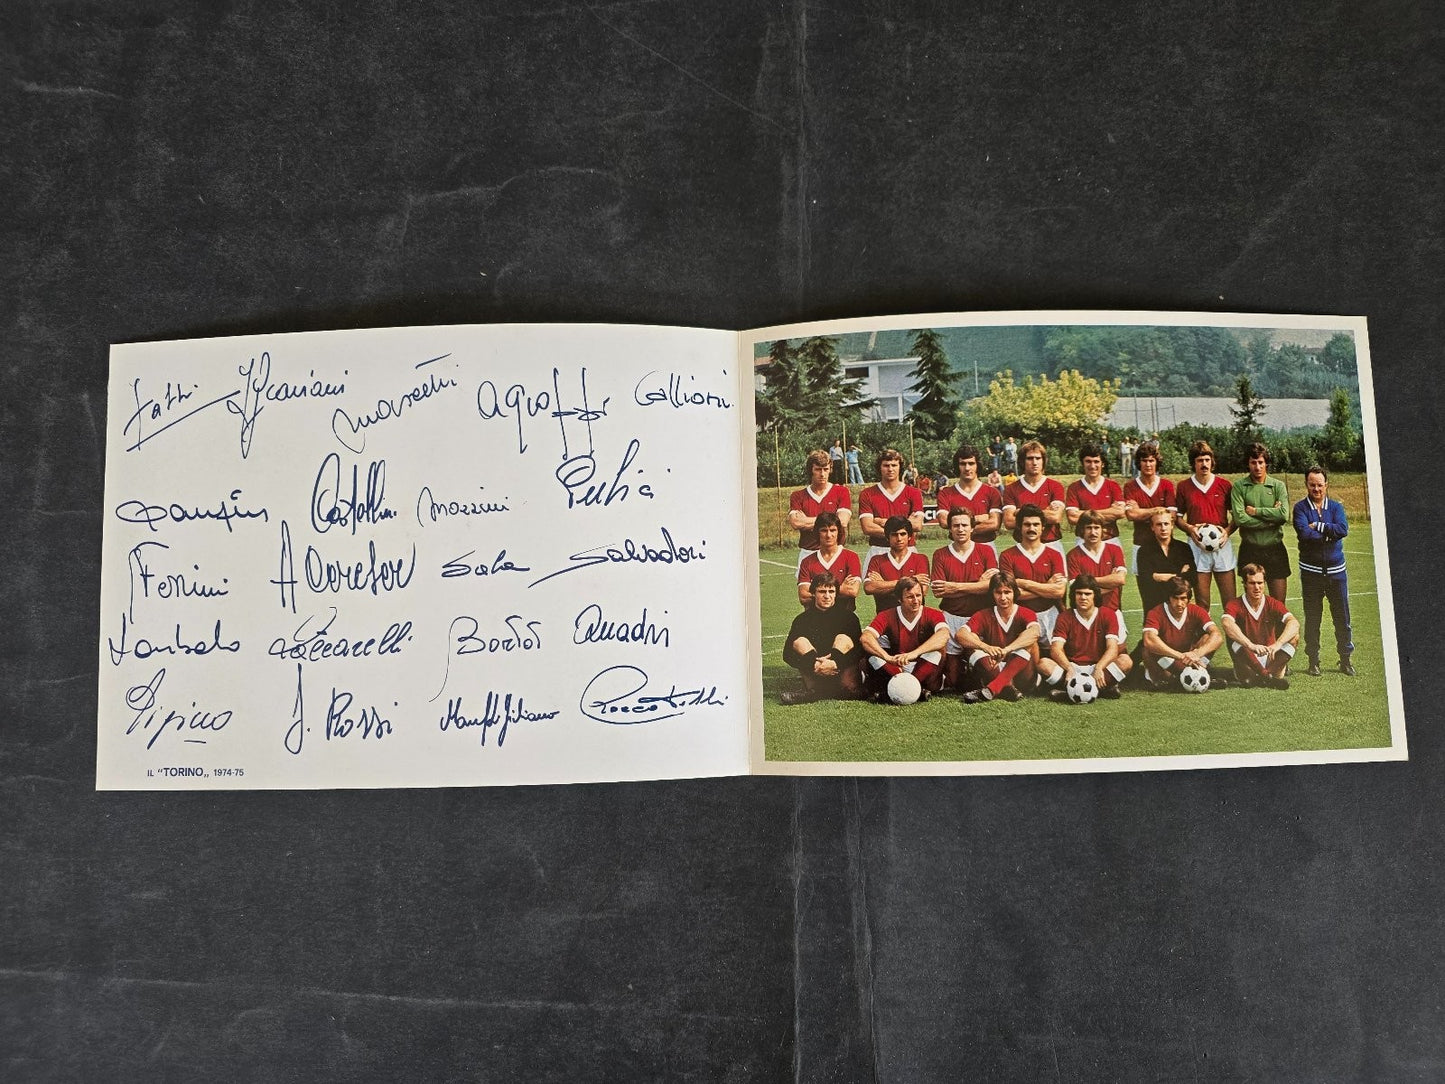 Fatti Graziani Mascetti Agroppi Callioni
Zanfin Castellini Mozzini Pulici
Ferrini A Cereser Sala Salvadori
Lombardo Zaccarelli Bortot Quadri
Pipino J. Rossi Manfredi Giuliano
IL "TORINO„ 1974-75
CI